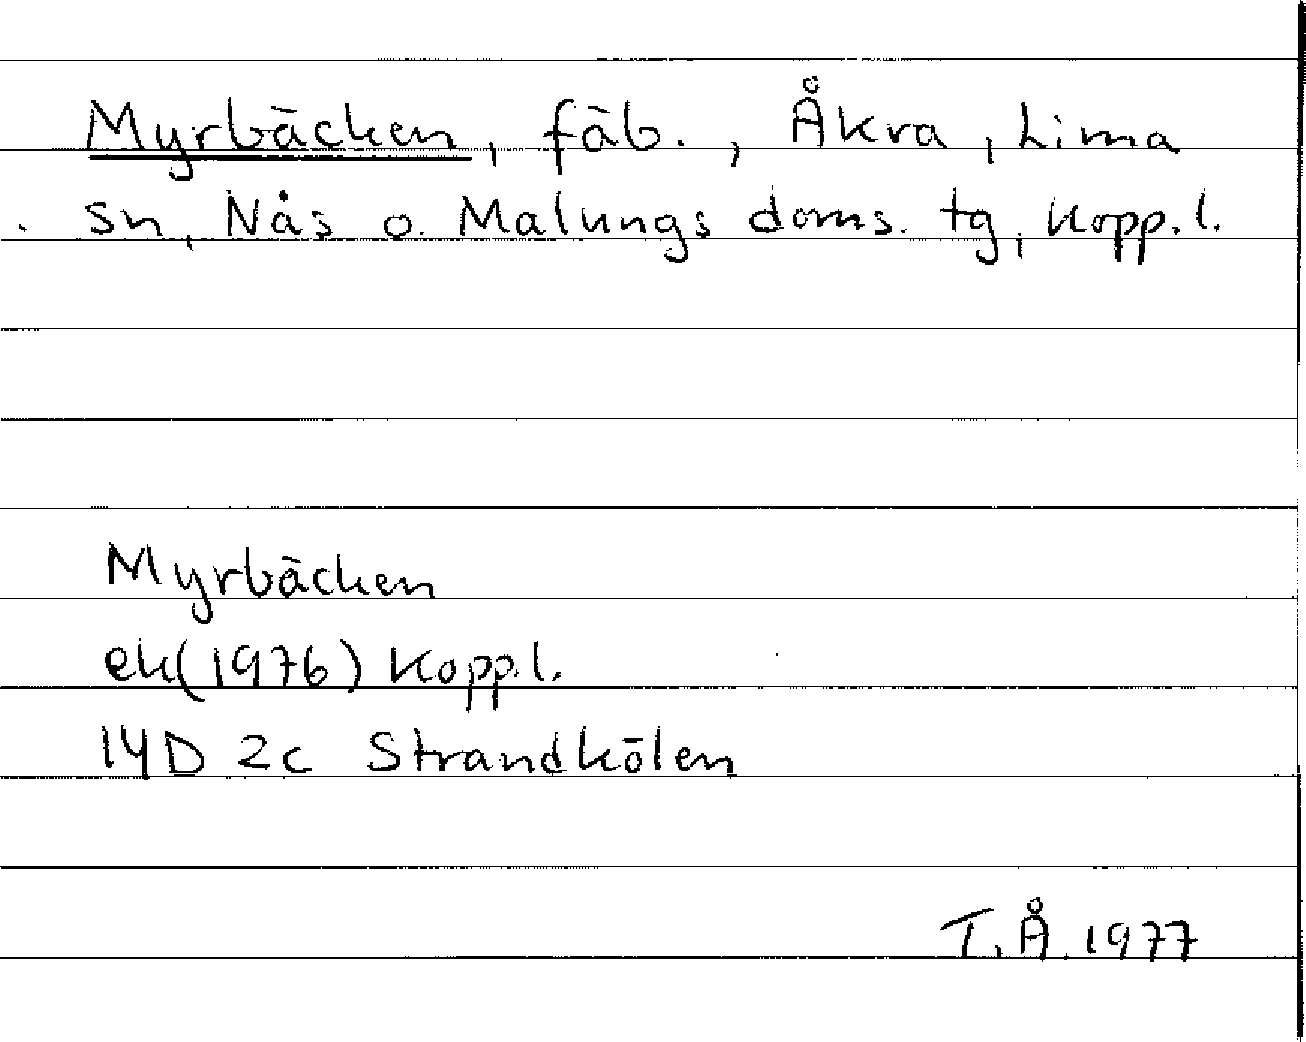 Myrbäcken, fäb., Åkra, Lima
sn, Nås o. Malungs doms. tg, Kopp.l.
Myrbäcken
ek(1976) Kopp.l.
14D 2c Strandkölen
T.Å.1977